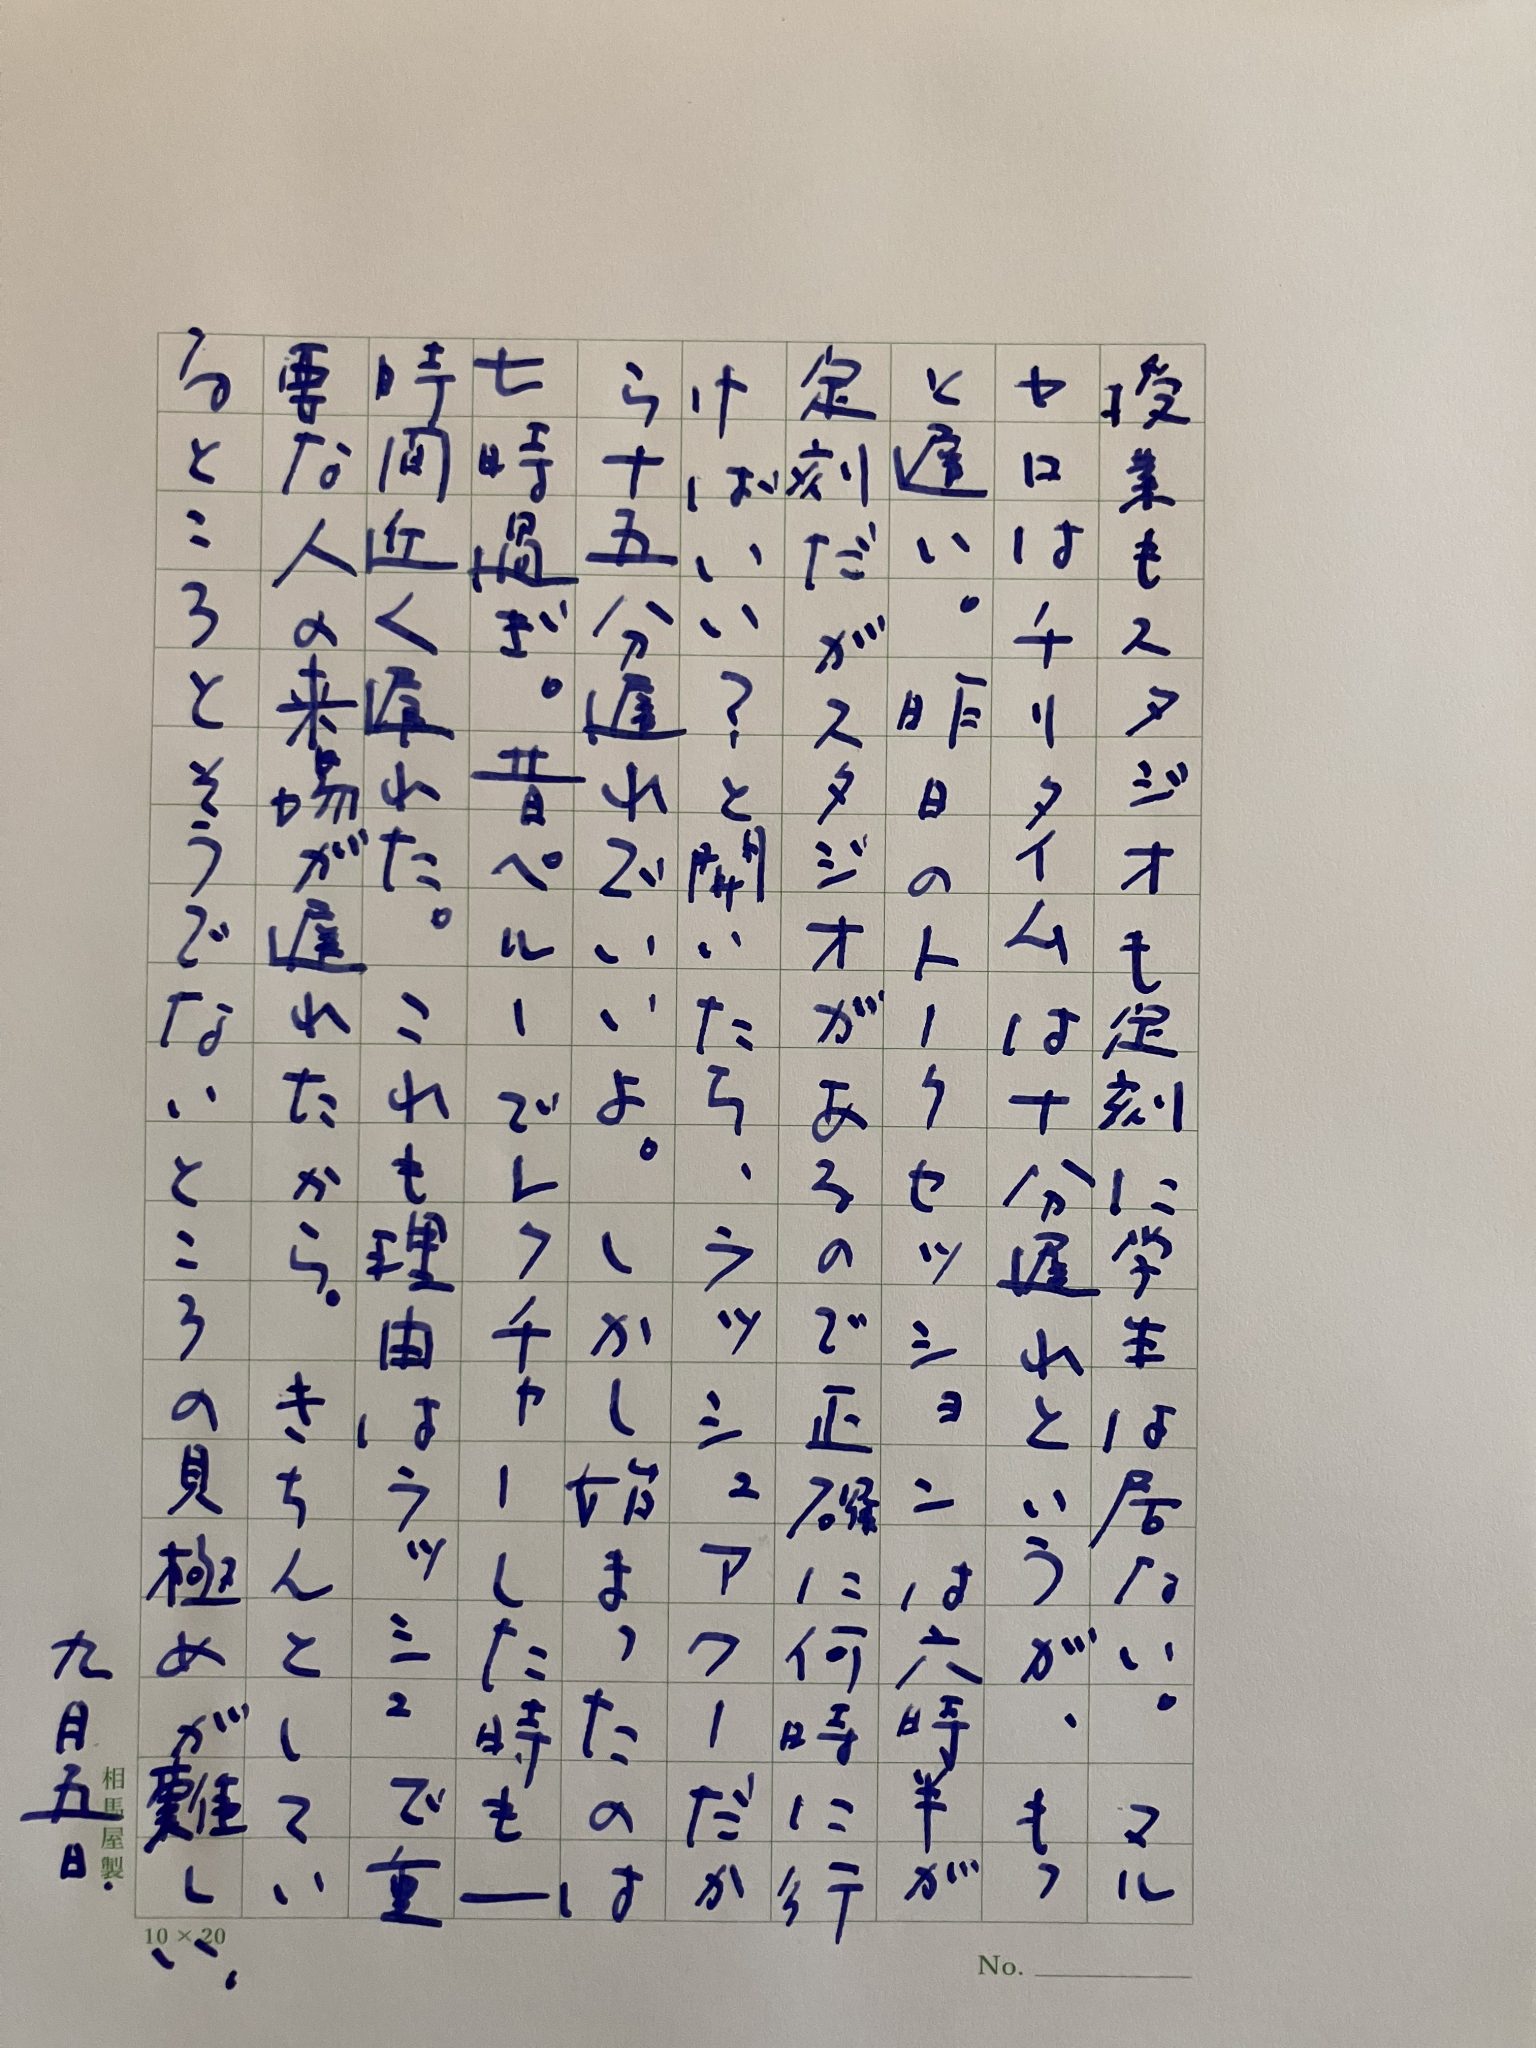 授業もスタジオも定刻に学生は居ない。マル
セロはチリタイムは十分遅れというが、もっ
と遅い。昨日のトークセッションは六時半が
定刻だがスタジオがあるので正確には何時に行
けばいい？と聞いたら、ラッシュアワーだか
ら十五分遅れでいいよ。しかし始まったのは
七時過ぎ。昔ペルーでレクチャーした時も一
時間近く遅れた。これも理由はラッシュで重
要な人の来場が遅れたから。きちんとしてい
るところとそうでないところの見極めが難し
い。
九月五日.
相馬屋製
10×20
No.